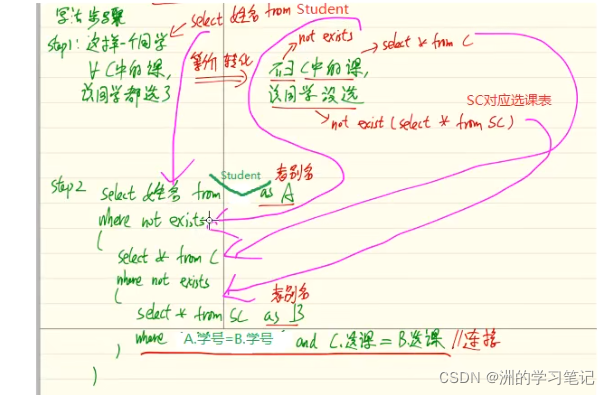 写法步骤
select 姓名 from Student
step1: 这样一个同学
∀ C中的课,
该同学都选了
等价 转化
not exists
select * from C
不∃ C中的课,
该同学没选
not exist (select * from SC)
SC对应选课表
step2 select 姓名 from Student as A
表别名
where not exists
(
select * from C
where not exists
(
表别名
select * from SC as B
where A.学号=B.学号 and C.选课 = B.选课 //连接
)
)
CSDN @洲的学习笔记